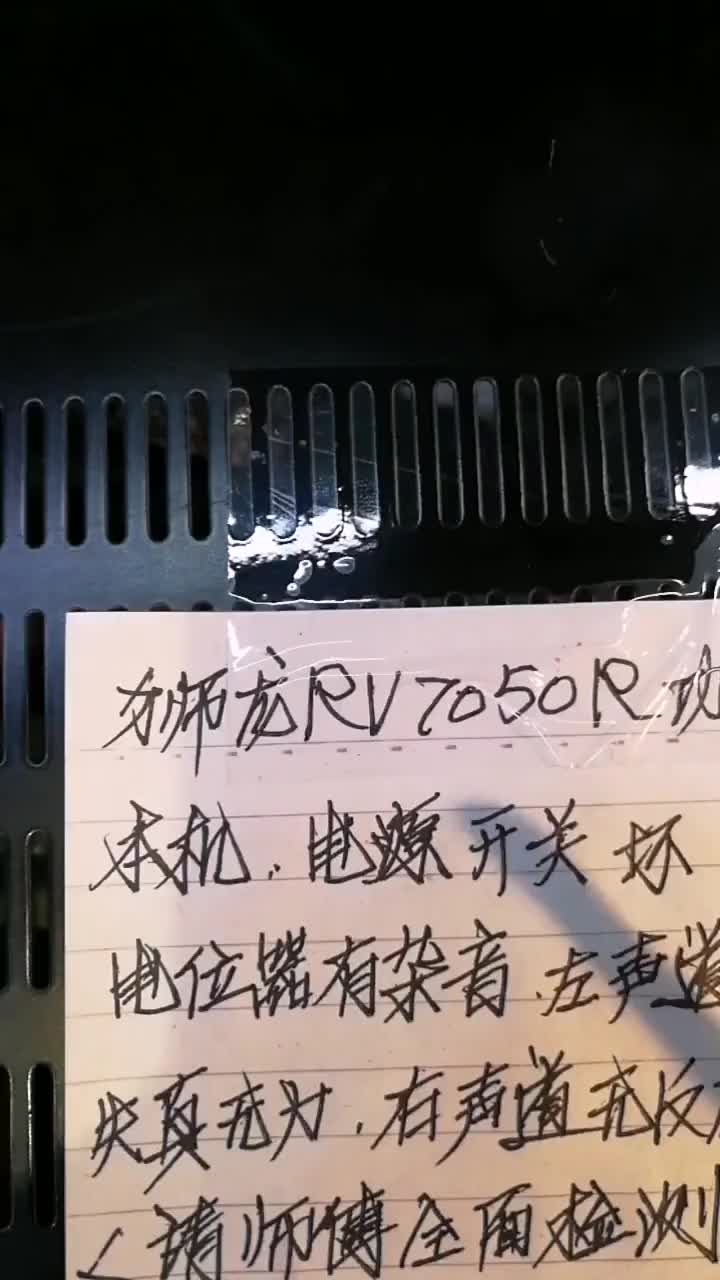 狮龙RV7050R.功
本机.电源开关坏
电位器有杂音.左声道
失真充为.右声道充反
请师傅全面检测